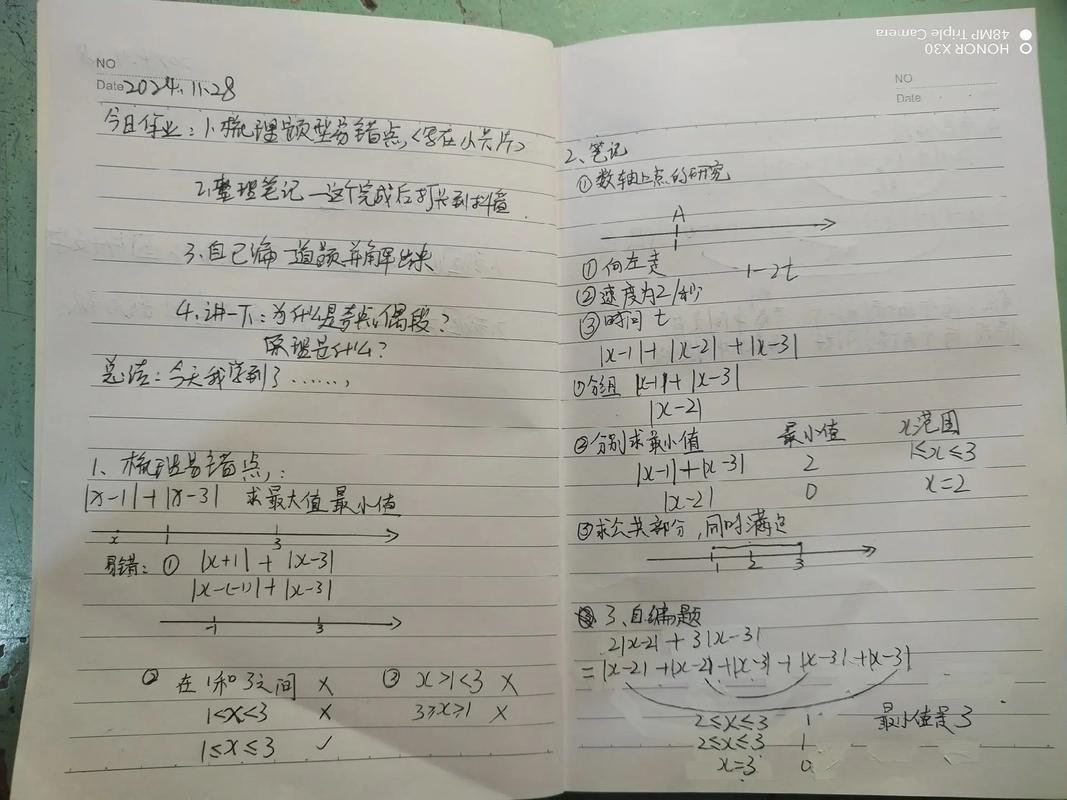 NO
Date 2024.11.28
今日作业：1.梳理题型易错点，<写在小卡片>
2.整理笔记—这个完成后打卡到抖音.
3.自己编一道题并解出来
4.讲一下：为什么是奇点偶段？
原理是什么？
总结：今天我学到了……，
1、梳理易错点，：
|x-1|+|x-3| 求最大值 最小值
x 1 3
易错：① |x+1| + |x-3|
|x-(-1)|+|x-3|
-1 3
② 在1和3之间 ×
1<x<3 ×
1≤x≤3 ✓
③ x>1<3 ×
3≥x≥1 ×
HONOR X30
48MP Triple Camera
NO
Date
2、笔记
①数轴上点的研究
A
1
①向左走 1-2t
②速度为2/秒
③时间 t
|x-1|+|x-2|+|x-3|
①分组 |x-1|+|x-3|
|x-2|
②分别求最小值 最小值 x范围
|x-1|+|x-3| 2 1≤x≤3
|x-2| 0 x=2
③求公共部分，同时满足
1 2 3
3、自编题
2|x-2|+3|x-3|
=|x-2|+|x-2|+|x-3|+|x-3|+|x-3|
2≤x≤3 1 最小值是3
2≤x≤3 1
x=3 0